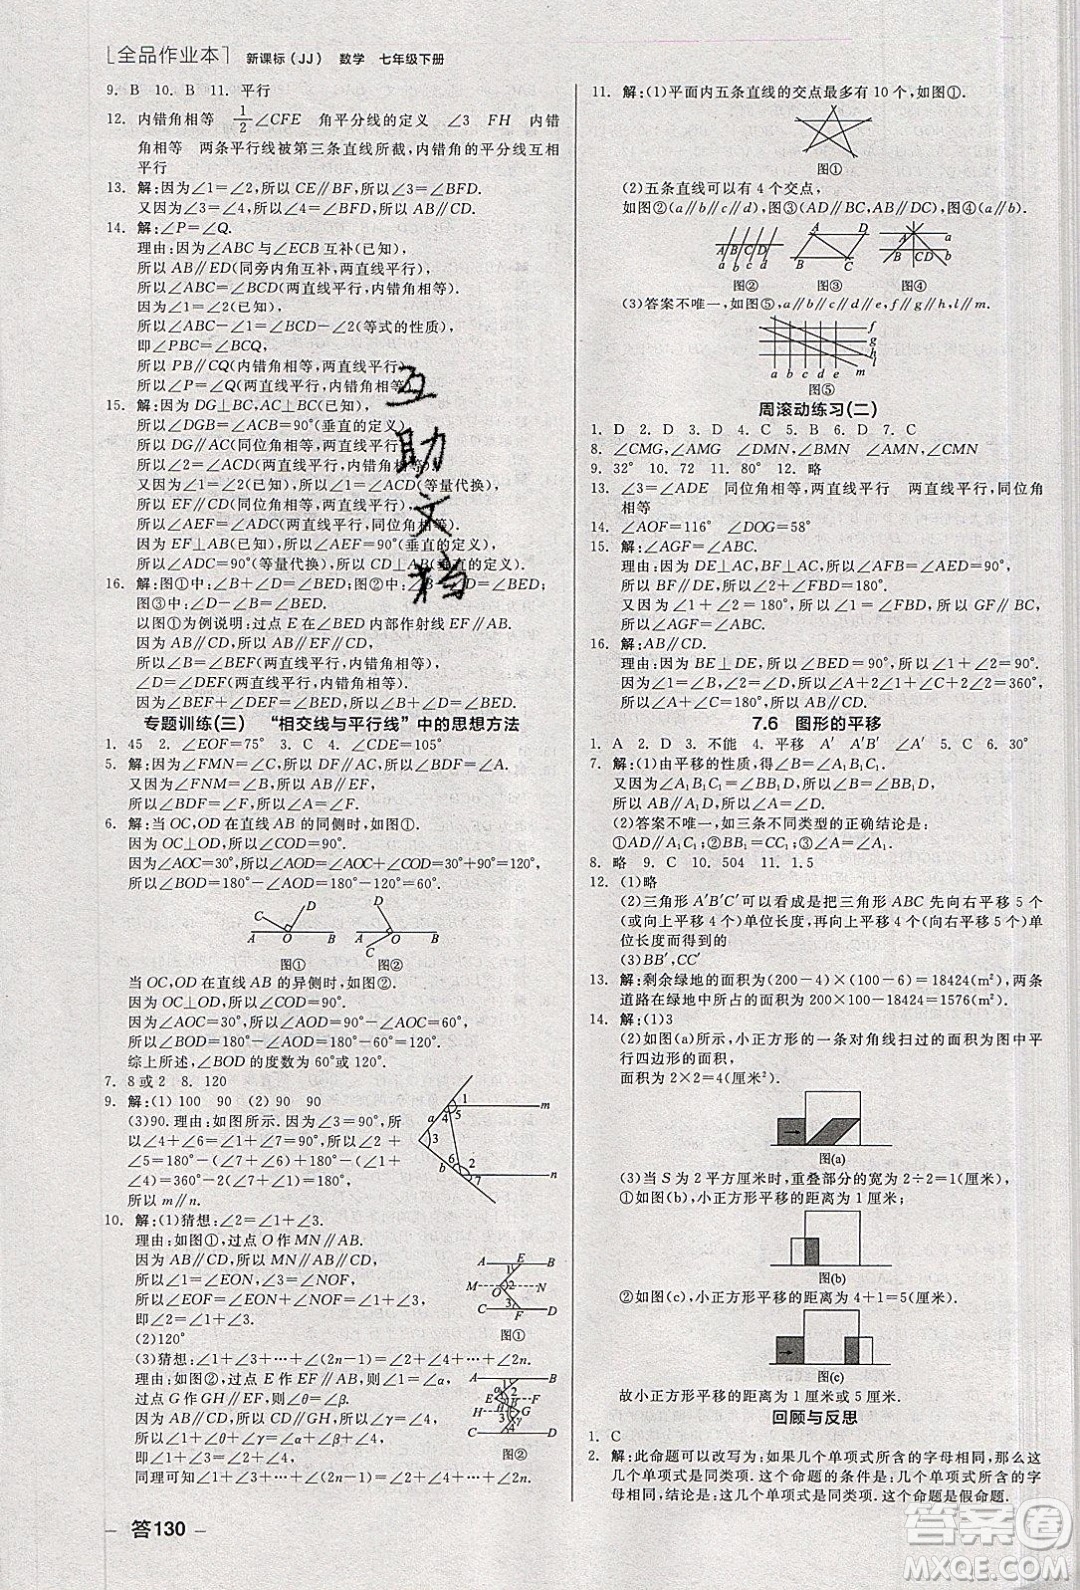 [全品作业本] 新课标(JJ) 数学 七年级下册
9. B 10. B 11. 平行
12. 内错角相等 1/2∠CFE 角平分线的定义 ∠3 FH 内错
角相等 两条平行线被第三条直线所截,内错角的平分线互相
平行
13. 解:因为∠1=∠2,所以 CE∥BF,所以∠3=∠BFD.
又因为∠3=∠4,所以∠4=∠BFD,所以 AB∥CD.
14. 解:∠P=∠Q.
理由:因为∠ABC 与∠ECB 互补(已知),
所以 AB∥ED(同旁内角互补,两直线平行),
所以∠ABC=∠BCD(两直线平行,内错角相等).
因为∠1=∠2(已知),
所以∠ABC-∠1=∠BCD-∠2(等式的性质),
即∠PBC=∠BCQ,
所以 PB∥CQ(内错角相等,两直线平行),
所以∠P=∠Q(两直线平行,内错角相等)
15. 解:因为 DG⊥BC,AC⊥BC(已知),
所以∠DGB=∠ACB=90°(垂直的定义),
所以 DG∥AC(同位角相等,两直线平行),
所以∠2=∠ACD(两直线平行,内错角相等).
又因为∠1=∠2,所以∠1=∠ACD(等量代换),
所以 EF∥CD(同位角相等,两直线平行),
所以∠AEF=∠ADC(两直线平行,同位角相等).
因为 EF⊥AB(已知),所以∠AEF=90°(垂直的定义),
所以∠ADC=90°(等量代换),所以 CD⊥AB(垂直的定义).
16. 解:图①中:∠B+∠D=∠BED;图②中:∠B+∠D=∠BED;
图③中:∠D-∠B=∠BED.
以图①为例说明:过点 E 在∠BED 内部作射线 EF∥AB.
因为 AB∥CD,所以 AB∥EF∥CD,
所以∠B=∠BEF(两直线平行,内错角相等),
∠D=∠DEF(两直线平行,内错角相等),
所以∠BED=∠BEF+∠DEF=∠B+∠D.
专题训练(三) “相交线与平行线”中的思想方法
1. 45 2. ∠EOF=75° 3. C 4. ∠CDE=105°
5. 解:因为∠FMN=∠C,所以 DF∥AC,所以∠BDF=∠A.
又因为∠FNM=∠B,所以 AB∥EF,
所以∠BDF=∠F,所以∠A=∠F.
6. 解:当 OC,OD 在直线 AB 的同侧时,如图①.
因为 OC⊥OD,所以∠COD=90°.
又因为∠AOC=30°,所以∠AOD=90°+30°=120°,
所以∠BOD=180°-∠AOD=180°-120°=60°.
C D A O B
图①
D A O B C
图②
当 OC,OD 在直线 AB 的异侧时,如图②.
因为 OC⊥OD,所以∠COD=90°.
又因为∠AOC=30°,所以∠AOD=90°-30°=60°,
所以∠BOD=180°-∠AOD=180°-60°=120°.
综上所述,∠BOD 的度数为 60°或 120°.
7. 8 或 2 8. 120
9. 解:(1)100 90 (2)90 90
(3)90.理由:如图所示.因为∠3=90°,所
以∠4+∠6=90°.由题意知∠1=∠4,∠2
=∠6,所以∠5+∠7=180°-(∠1+
∠4)+180°-(∠2+∠6)=360°-2(∠6+
∠4)=180°,
所以 m∥n.
a 1 4 5 m 3 b 6 2 7 n
10. 解:(1)猜想:∠2=∠1+∠3.
理由:如图①,过点 O 作 MN∥AB.
因为 AB∥CD,所以 MN∥CD,
所以∠1=∠EON,∠3=∠FON,
所以∠EOF=∠EON+∠FON=∠1+∠3,
即∠2=∠1+∠3.
A E B M O N C F D
图①
(2)120
(3)猜想:∠1+∠3+…+∠(2n-1)=∠2+∠4+…+∠2n.
理由:如图②,∠1+∠3+…+∠(2n-1)=∠2+∠4+…+∠2n.
过点 G 作 GH∥EF,所以∠α=∠β.
因为 CD∥EF,所以 CD∥GH,所以∠γ=∠7,
所以∠1+∠α=∠2,∠β+∠γ=∠6,
所以∠1+∠β+∠γ=∠2+∠6,
即∠1+∠6=∠2+∠β+∠7.
同理可知∠1+∠3+…+∠(2n-1)=∠2+∠4+…+∠2n.
图②
答130
11. 解:(1)平面内五条直线的交点最多有 10 个,如图①.
图①
(2)五条直线可以有 4 个交点,
如图②(a∥b∥c∥d),图③(AD∥BC,AB∥CD),图④(a∥b).
a b c d
图②
A D B C
图③
A a B C D b
图④
(3)答案不唯一,如图⑤,a∥b∥c∥d∥e,f∥g∥h,l∥m.
f g h l m
图⑤
周滚动练习(二)
1. D 2. D 3. D 4. C 5. B 6. D 7. C
8. ∠CMG,∠AMG ∠DMN,∠BMN ∠AMN ∠CMN
9. 32° 10. 72 11. 80° 12. 略
13. ∠3=∠ADE 同位角相等,两直线平行 两直线平行,同位角
相等
14. ∠AOF=116° ∠DOG=58°
15. 解:∠AGF=∠ABC.
理由:因为 DE⊥AC,BF⊥AC,所以 DE∥BF,
所以∠2+∠FBD=180°.
又因为∠1+∠2=180°,所以∠1=∠FBD,所以 GF∥BC,
所以∠AGF=∠ABC.
16. 解:AB∥CD.
理由:因为 BE⊥DE,所以∠BED=90°,所以∠1+∠2=90°.
因为∠ABE=2∠1,∠CDE=2∠2,
所以∠ABE+∠CDE+∠BED=2(∠1+∠2)+∠BED=
180°+90°=270°,所以∠ABD+∠BDC=360°-270°=90°
7.6 图形的平移
1. A 2. D 3. 不能 4. 平移 A′ A′ 5. C 6. 30°
7. 解:(1)由平移的性质,得∠BB₁D=∠B₁A₁C₁.
又因为∠A=∠B₁A₁C₁,∠A=∠BB₁D,
所以∠BB₁D=∠A.
(2)答案不唯一,如三个不同类型的正确结论是:
①AB∥A₁B₁;②BB₁=CC₁;③∠A=∠A₁.
8. 略 9. C 10. 504 11. 1.5
12. (1)略
(2)三角形 A′B′C′可以看成是把三角形 ABC 先向右平移 5 个
(或向上平移 4 个)单位长度,再向上平移 4 个(向右平移 5 个)单
位长度而得到的
(3)BB′,CC′
13. 解:剩余绿地的面积为(200-4)×(100-6)=18424(m²),两条
道路在绿地中所占的面积为 200×100-18424=1576(m²).
14. 解:(1)3
(2)如图(a)所示,小正方形的一条对角线扫过的面积为图中平
行四边形的面积,
面积为 2×2=4(厘米²)
图(a)
(3)当 S 为 2 平方厘米时,重叠部分的宽为 2÷2=1(厘米).
①如图(b),小正方形平移的距离为 1 厘米;
图(b)
②如图(c),小正方形平移的距离为 4+1=5(厘米).
图(c)
故小正方形平移的距离为 1 厘米或 5 厘米.
回顾与反思
1. C
2. 解:此命题可以改写为:如果几个单项式所含的字母相同,那么这
几个单项式是同类项.这个命题的条件是:几个单项式所含的字
母相同,结论是:这几个单项式是同类项.这个命题是假命题.
互
助
文
档
答案圈
MXQE.COM